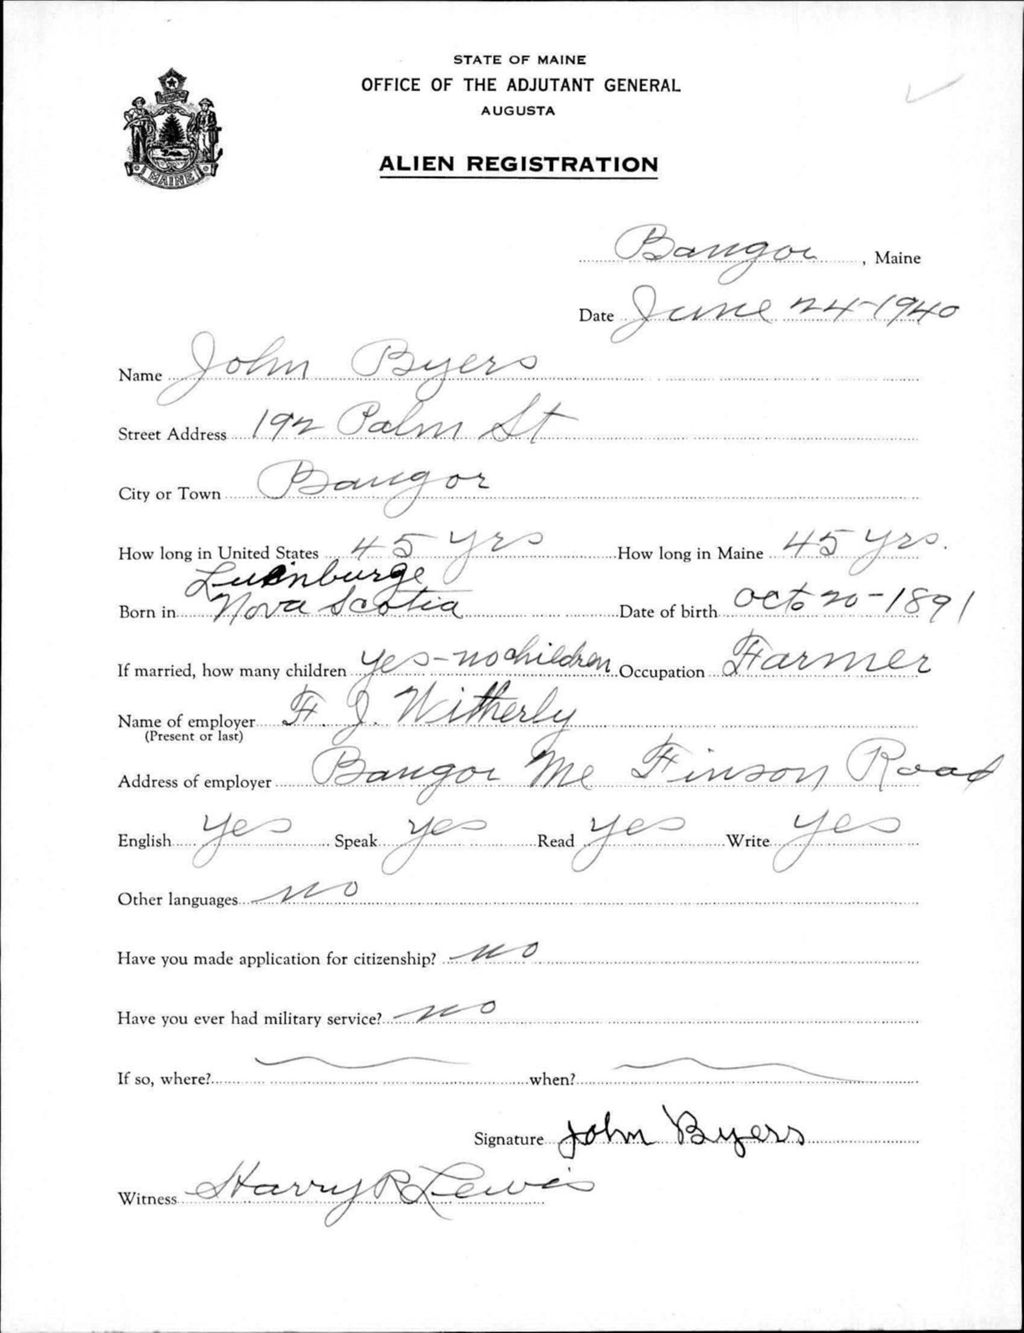 STATE OF MAINE
OFFICE OF THE ADJUTANT GENERAL
AUGUSTA
ALIEN REGISTRATION
MAINE
Bangor, Maine
Date June 24-1940
Name John Byers
Street Address 192 Palm St
City or Town Bangor
How long in United States 45 yrs How long in Maine 45 yrs.
Luenburge
Born in Nova Scotia Date of birth Oct 20-1891
If married, how many children yes-no children Occupation Farmer
Name of employer F. J. Witherly
(Present or last)
Address of employer Bangor Me Finson Road
English yes Speak yes Read yes Write yes
Other languages no
Have you made application for citizenship? no
Have you ever had military service? no
If so, where? when?
Signature John Byers
Witness Harry R Lewis